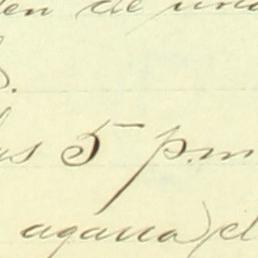 en de una
las 5 p.m
agarra el